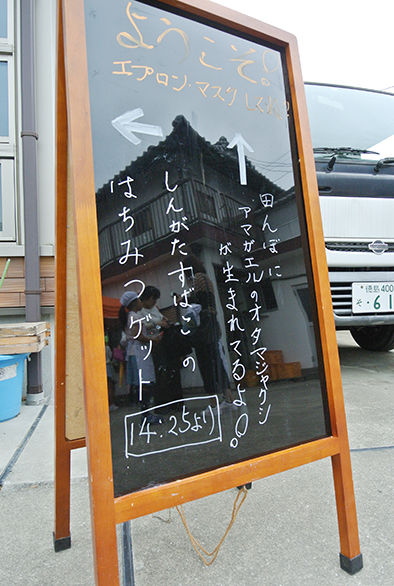 ようこそ!
エプロン・マスク
田んぼに
アマガエルのオタマジャクシ
が生まれてるよ!!
しんがたすばこの
はちみつゲット
14:25より
徳島 400
そ ・61